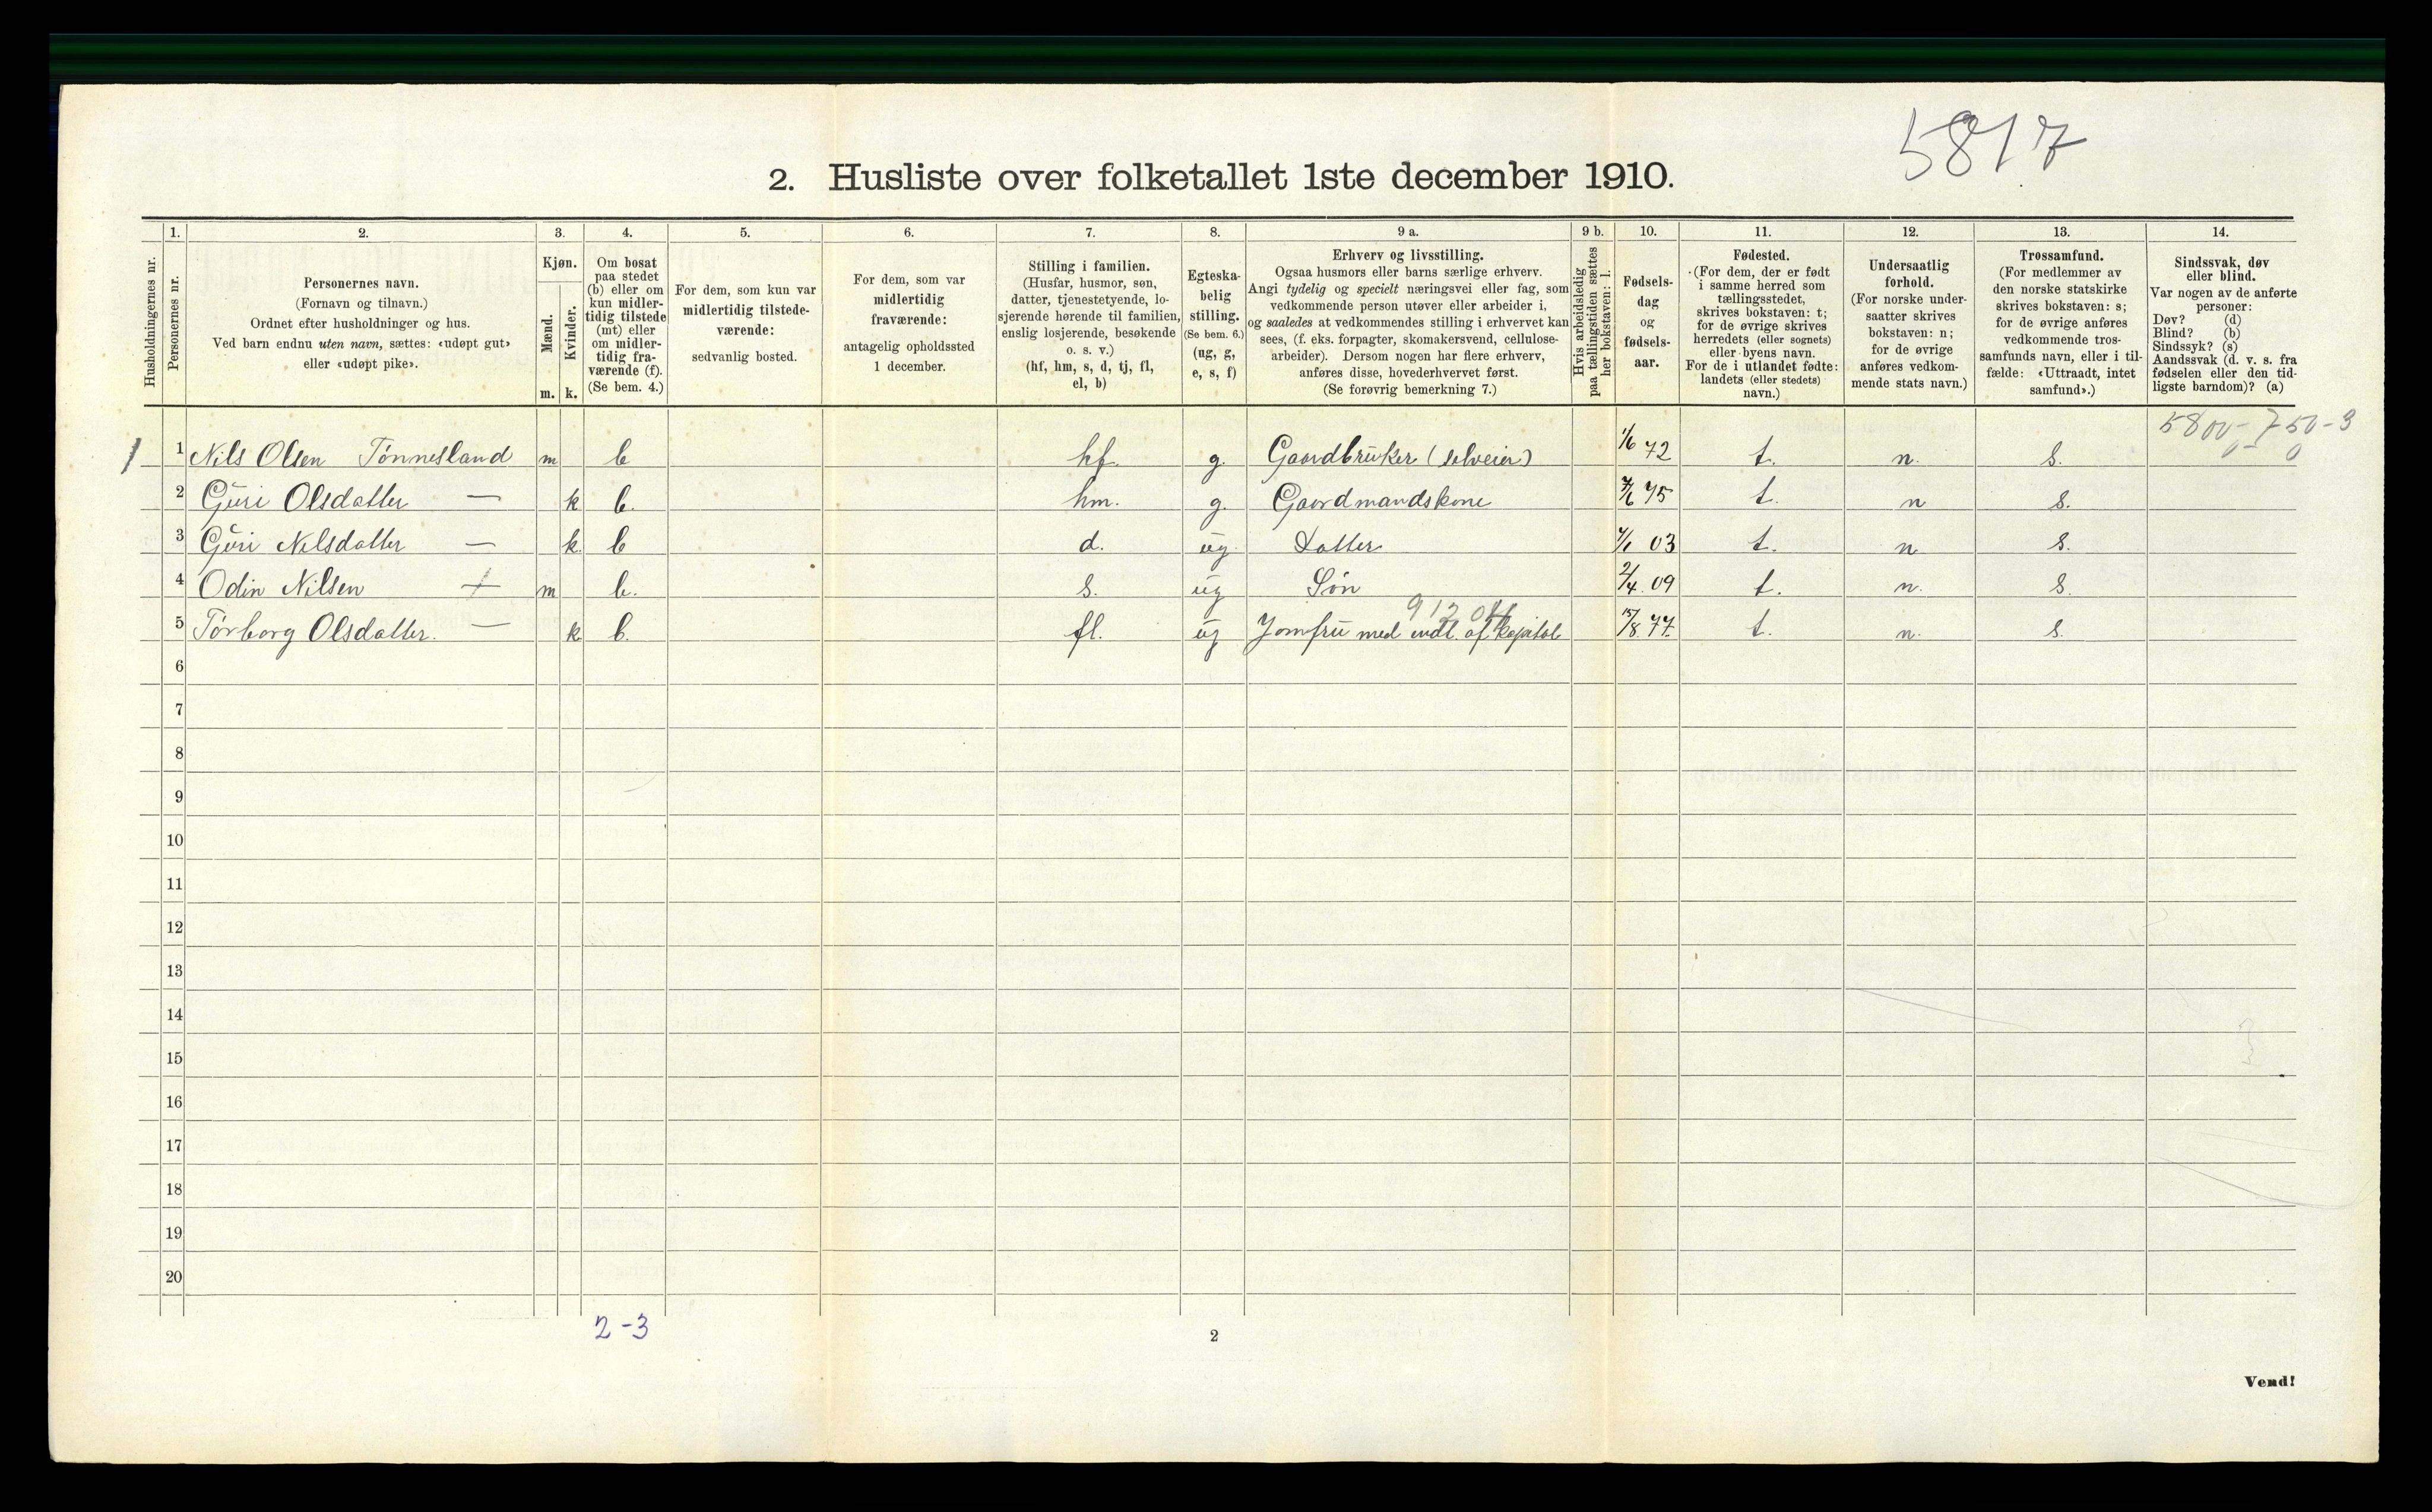 5817
2. Husliste over folketallet 1ste december 1910.
1. 2. 3. 4. 5. 6. 7. 8. 9 a. 9 b. 10. 11. 12. 13. 14.
Husholdningernes nr.
Personernes nr.
Personernes navn.
(Fornavn og tilnavn.)
Ordnet efter husholdninger og hus.
Ved barn endnu uten navn, sættes: «udøpt gut»
eller «udøpt pike».
Kjøn.
Mænd.
Kvinder.
m. k.
Om bosat
paa stedet
(b) eller om
kun midler-
tidig tilstede
(mt) eller
om midler-
tidig fra-
værende (f).
(Se bem. 4.)
For dem, som kun var
midlertidig tilstede-
værende:
sedvanlig bosted.
For dem, som var
midlertidig
fraværende:
antagelig opholdssted
1 december.
Stilling i familien.
(Husfar, husmor, søn,
datter, tjenestetyende, lo-
sjerende hørende til familien,
enslig losjerende, besøkende
o. s. v.)
(hf, hm, s, d, tj, fl,
el, b)
Egteska-
belig
stilling.
(Se bem. 6.)
(ug, g,
e, s, f)
Erhverv og livsstilling.
Ogsaa husmors eller barns særlige erhverv.
Angi tydelig og specielt næringsvei eller fag, som
vedkommende person utøver eller arbeider i,
og saaledes at vedkommendes stilling i erhvervet kan
sees, (f. eks. forpagter, skomakersvend, cellulose-
arbeider). Dersom nogen har flere erhverv,
anføres disse, hovederhvervet først.
(Se forøvrig bemerkning 7.)
Hvis arbeidsledig
paa tællingstiden sættes
her bokstaven: l.
Fødsels-
dag
og
fødsels-
aar.
Fødested.
(For dem, der er født
i samme herred som
tællingsstedet,
skrives bokstaven: t;
for de øvrige skrives
herredets (eller sognets)
eller byens navn.
For de i utlandet fødte:
landets (eller stedets)
navn.)
Undersaatlig
forhold.
(For norske under-
saatter skrives
bokstaven: n;
for de øvrige
anføres vedkom-
mende stats navn.)
Trossamfund.
(For medlemmer av
den norske statskirke
skrives bokstaven: s;
for de øvrige anføres
vedkommende tros-
samfunds navn, eller i til-
fælde: «Uttraadt, intet
samfund».)
Sindssvak, døv
eller blind.
Var nogen av de anførte
personer:
Døv? (d)
Blind? (b)
Sindssyk? (s)
Aandssvak (d. v. s. fra
fødselen eller den tid-
ligste barndom)? (a)
5800-750-3
0 0
1 1 Nils Olsen Tønnesland m b hf. g. Gaardbruker (selveier) 1/6 72 t. n. s.
2 Guri Olsdatter — k b. hm. g. Gaardmandskone 7/6 75 t. n s.
3 Guri Nilsdatter — k. b d. ug. Datter 7/1 03 t. n. s.
4 Odin Nilsen + m b. s. ug Søn 2/4 09 t. n. s.
912 04
5 Torborg Olsdatter. — k b. fl. ug Jomfru med indt. af kapital 15/8 77. t. n. s.
6
7
8
9
10
11
12
13
14
15
16
17
18
19
20
2-3
2
Vend!